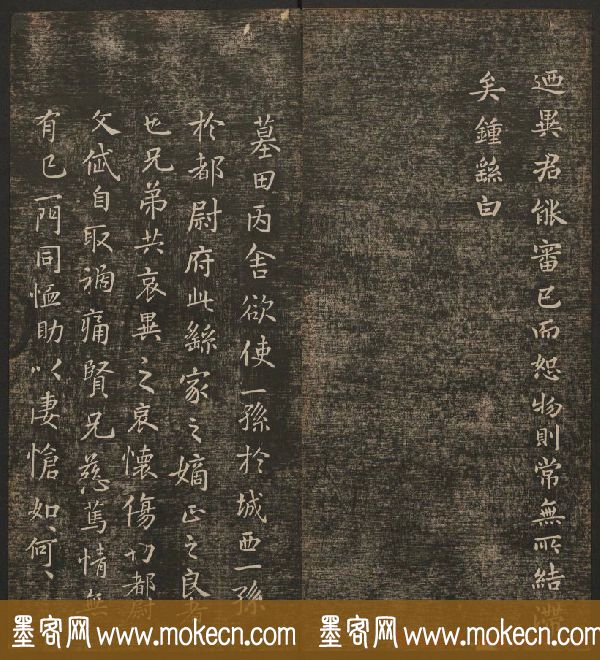 迺異君能審己而恕物則常無所結滯
矣鍾繇白
墓田丙舍欲使一孫於城西一孫
於都尉府此繇家之嫡正之良者
也兄弟共哀異之哀懷傷切都尉
文俶自取禍痛賢兄慈篤情無
有已一門同恤助以悽愴如何
墨客网 www.mokecn.com 墨客网 www.mokecn.com